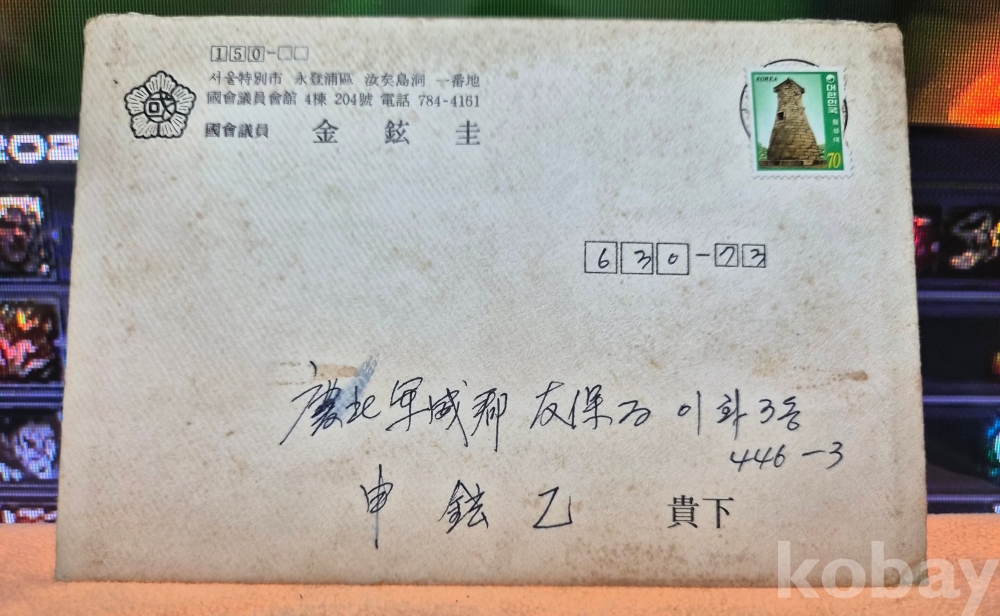 150-□□
서울特別市 永登浦區 汝矣島洞 一番地
國會議員會館 4棟 204號 電話 784-4161
國會議員 金鉉圭
國
KOREA
대한민국
첨성대
70
630-73
慶北 軍威郡 友保面 이화3동
446-3
申鉉乙 貴下
202
kobay